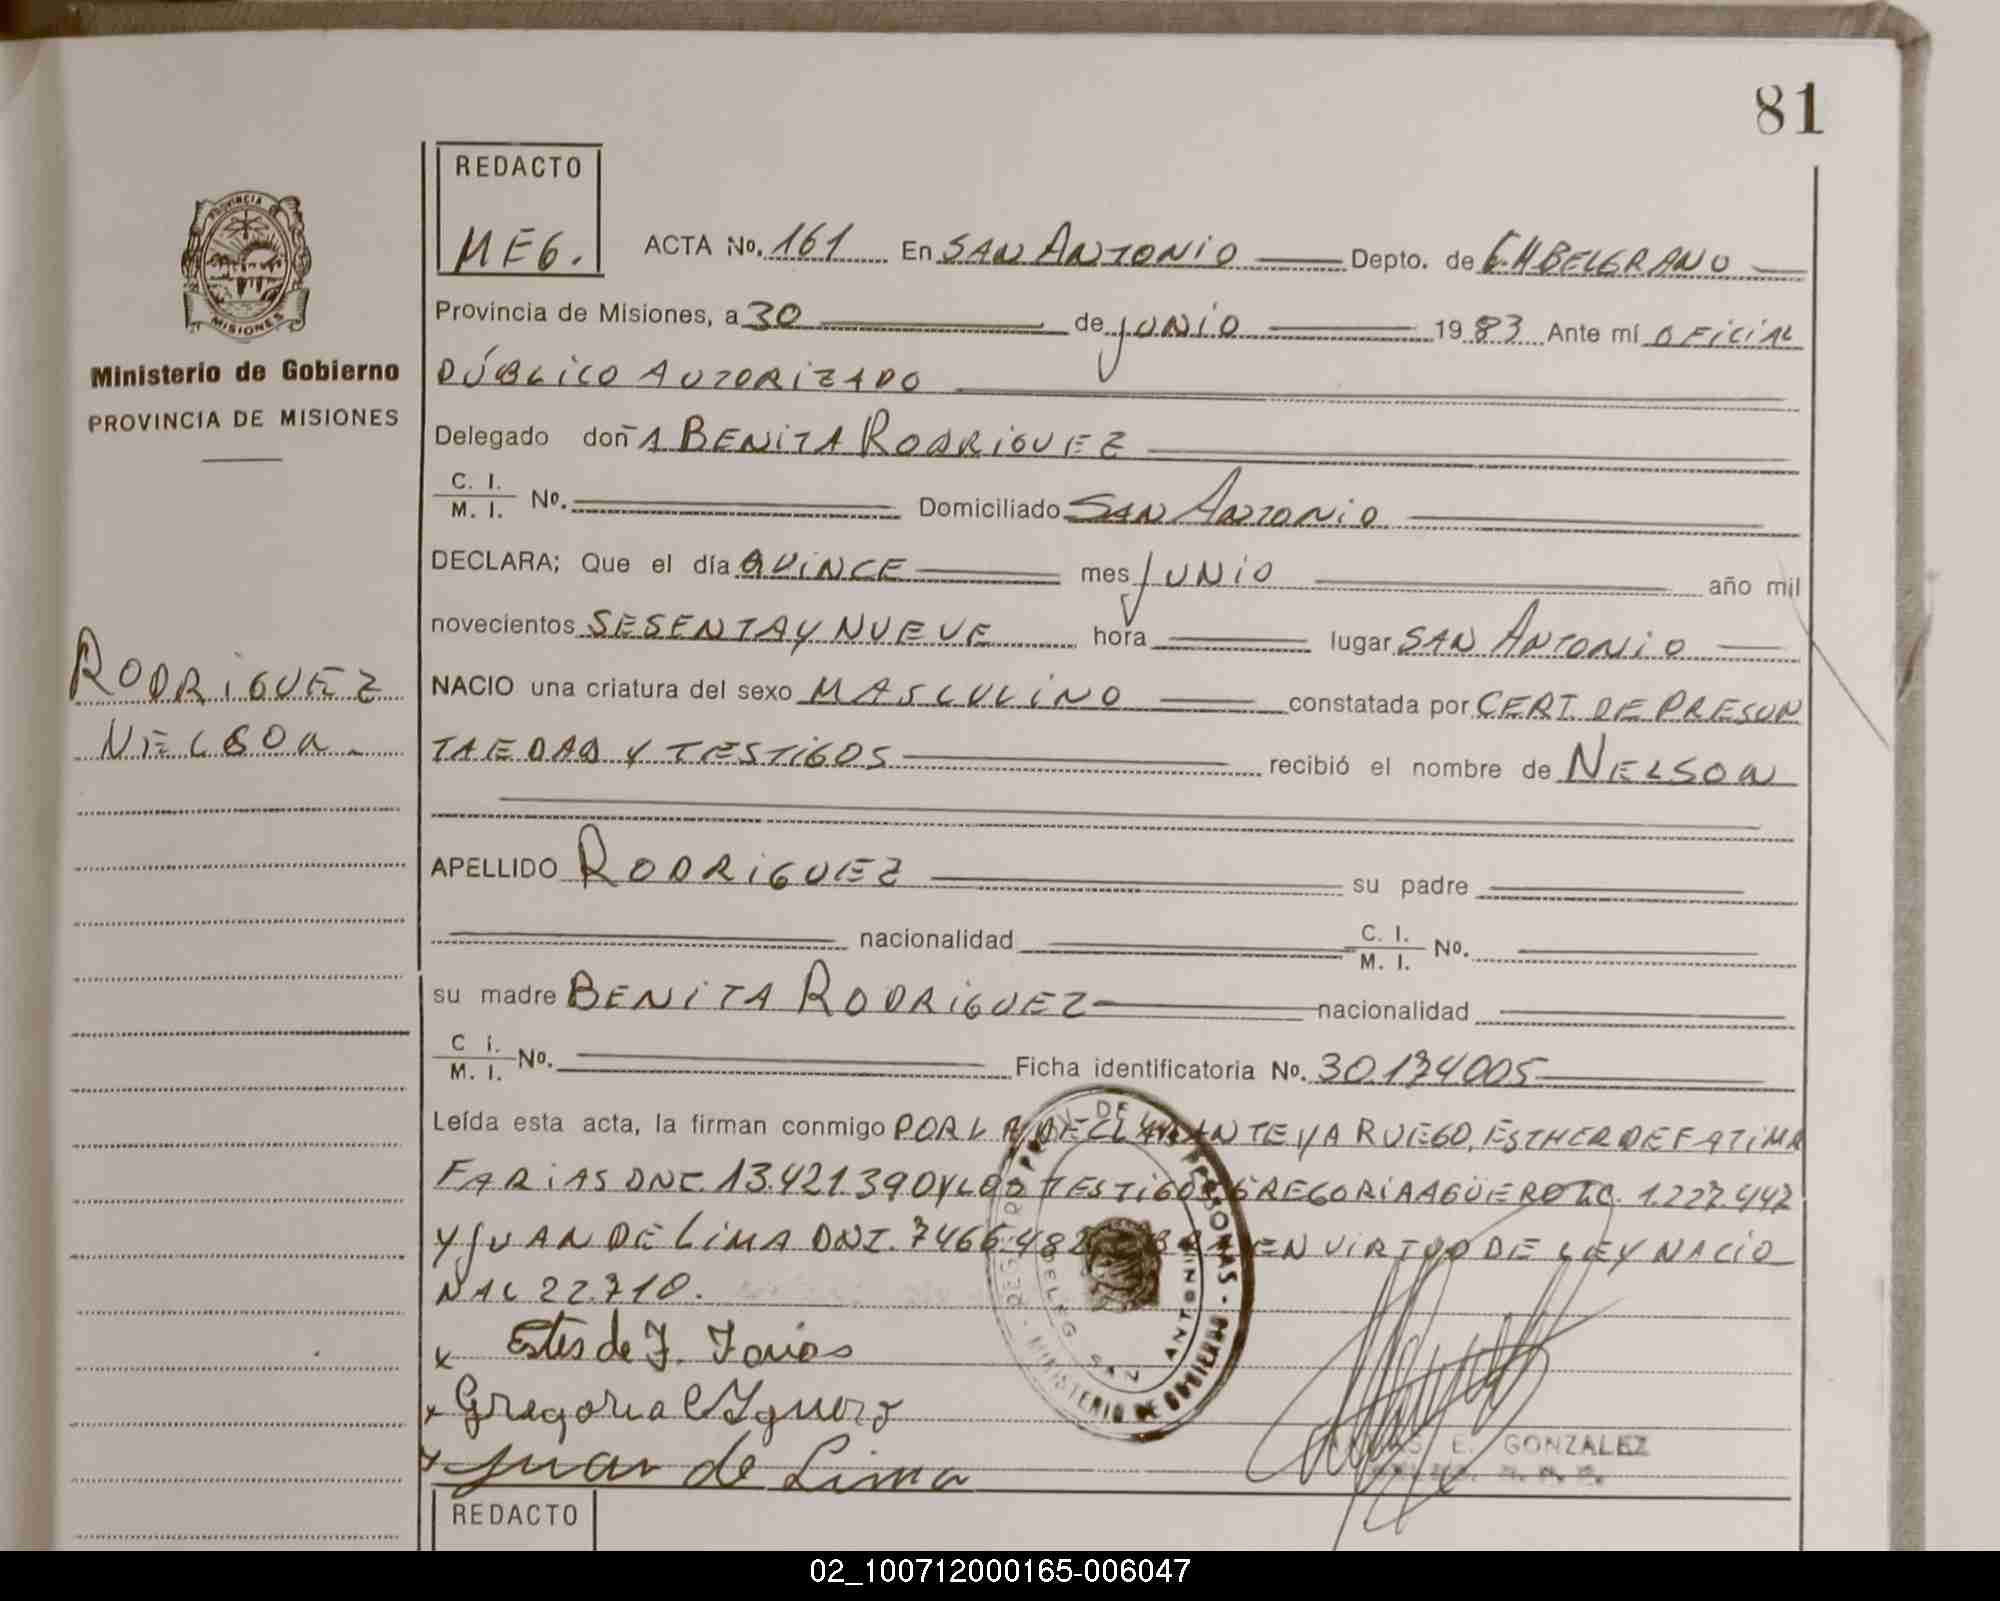 81
REDACTO
MEG.
ACTA No. 161 En SAN ANTONIO Depto. de G.M BELGRANO
Provincia de Misiones, a 30 de JUNIO 1983 Ante mí OFICIAL
PÚBLICO AUTORIZADO
Delegado doñA BENITA RODRIGUEZ
C. I.
M. I. No. Domiciliado SAN ANTONIO
DECLARA; Que el día QUINCE mes JUNIO año mil
novecientos SESENTA Y NUEVE hora lugar SAN ANTONIO
NACIO una criatura del sexo MASCULINO constatada por CERT. DE PRESUN
TA EDAD Y TESTIGOS recibió el nombre de NELSON
APELLIDO RODRIGUEZ su padre
nacionalidad C. I.
M. I. No.
su madre BENITA RODRIGUEZ nacionalidad
C i.
M. I. No. Ficha identificatoria No. 30.134005
Leída esta acta, la firman conmigo POR LA DECLARANTE Y A RUEGO, ESTHER DE FATIMA
FARIAS DNI. 13.421.390 Y LOS TESTIGOS GREGORIA AGÜERO L.C. 1.227.442
Y JUAN DE LIMA DNI. 7466.482 EN VIRTUD DE LEY NACIO
NAL 22.710.
x Ester de F. Farias
x Gregoria Aguero
x Juan de Lima
PROVINCIA DE
MISIONES
Ministerio de Gobierno
PROVINCIA DE MISIONES
RODRIGUEZ
NELSON.
REG. PROV. DE LAS PERSONAS - MINISTERIO DE GOBIERNO -
DELEG. SAN ANTONIO
E. GONZALEZ
REDACTO
02_100712000165-006047